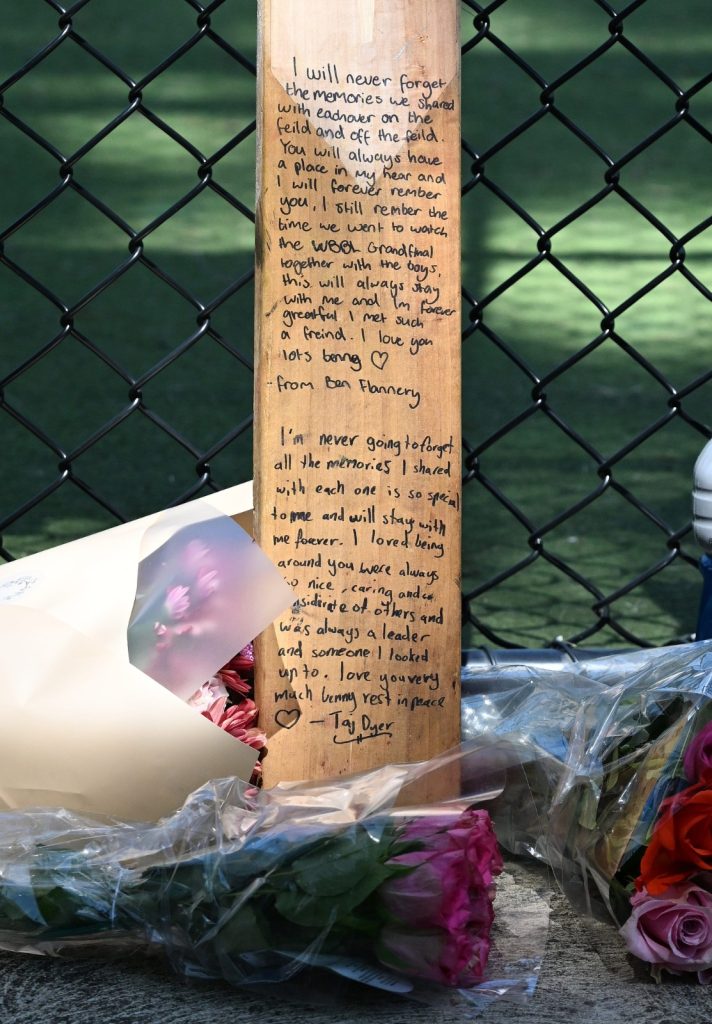 I will never forget
the memories we shared
with eachover on the
feild and off the feild.
You will always have
a place in my hear and
I will forever rember
you. I still rember the
time we went to watch
the Grandfinal
together with the boys,
this will always stay
with me and Im forever
greatful I met such
a freind. I love you
lots benny ♡
-from Ben Flannery
I'm never going to forget
all the memories I shared
with each one is so special
to me and will stay with
me forever. I loved being
around you were always
so nice, caring and
of others and
was always a leader
and someone I looked
up to. love you very
much benny rest in peace
♡ - Taj Dyer